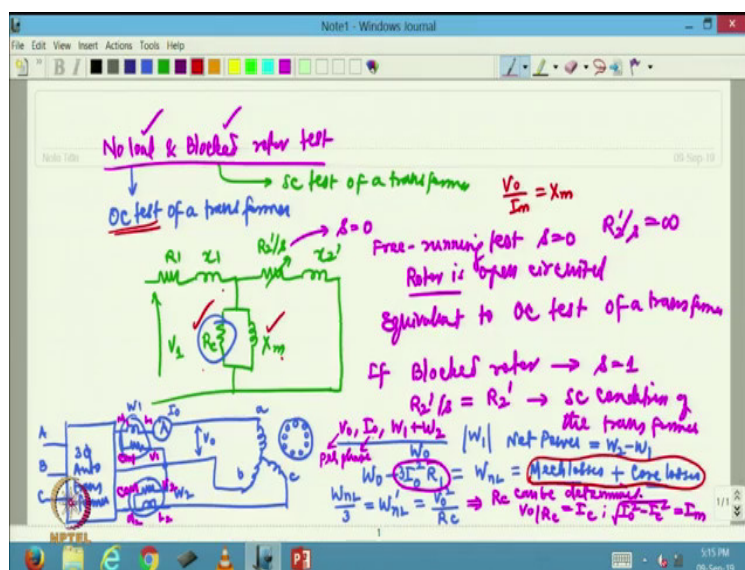 Note1 - Windows Journal
File Edit View Insert Actions Tools Help
B I
Note Title
09-Sep-19
No load & Blocked rotor test
SC test of a transformer
OC test of a transformer
V0/Im = Xm
R1 x1 R2'/s x2'
s=0
V1 Rc Xm
Free-running test s=0 R2'/s = ∞
Rotor is open circuited
Equivalent to OC test of a transformer
If Blocked rotor → s=1
R2'/s = R2' → SC condition of
the transformer
A
B
C
3Φ
Auto
W1
I0
A
V0
a
b
c
com
V1
V2
W2
L2
V0, I0, W1+W2
Per phase
W0
|W1| Net Power = W2-W1
W0 - 3I0²R1 = WNL = Mech losses + Core losses
WNL/3 = W'NL = V0²/Rc ⇒ Rc can be determined.
V0/Rc = Ic ; √I0²-Ic² = Im
NPTEL
1
1/1
5:15 PM
09-Sep-19